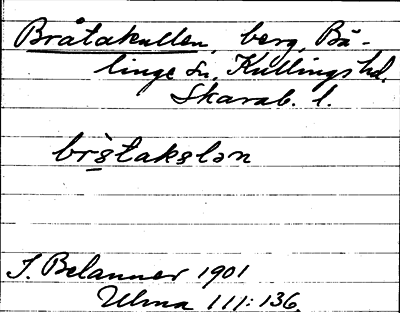 Bråtakullen, berg, Bä-
linge sn, Kullings hd.
Skarab. l.
J. Belanner 1901
Ulma 111:136.